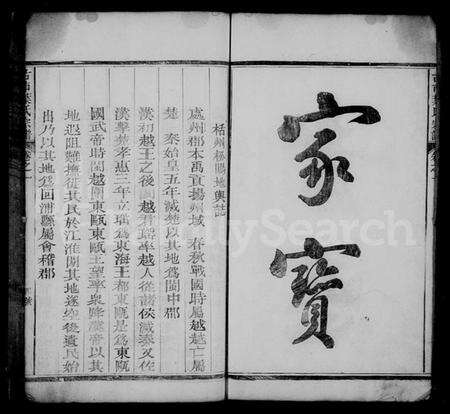 家寶
栝州松陽地輿誌
處州郡本禹貢揚州域春秋戰國時屬越越亡屬
楚秦始皇五年滅楚以其地爲閩中郡
漢初越王之後因越君率越人從諸侯滅秦又佐
漢擊楚孝惠三年立爲東海王都東甌是爲東甌
國武帝時閩越圍東甌東甌王望率衆降漢帝以其
地遐阻難撫徙其民於江淮間其地遂空後遺民始
出乃以其地爲回浦縣屬會稽郡
FamilySearch